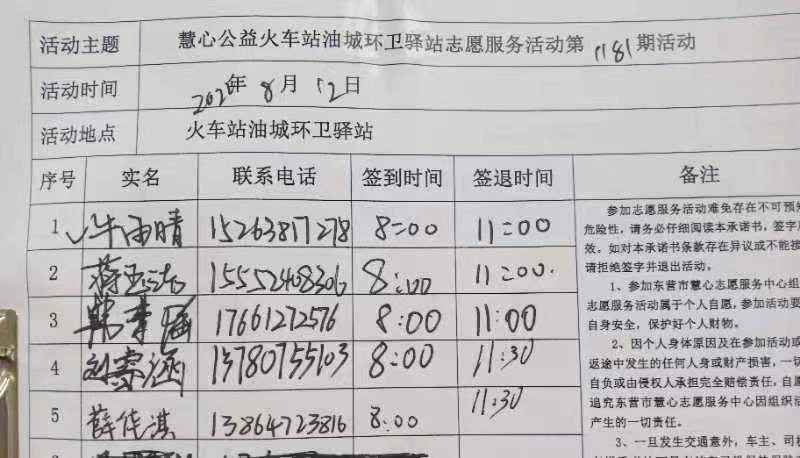 活动主题 慧心公益火车站油城环卫驿站志愿服务活动第1181期活动
活动时间 年8月12日
活动地点 火车站油城环卫驿站
序号 实名 联系电话 签到时间 签退时间 备注
1 牛雨晴 15263817278 8:00 11:00
2 蒋 15552408306 8:00 11:00.
3 17661272576 8:00 11:00
4 刘雪涵 13780755103 8:00 11:30
5 薛佳淇 13864723816 8:00 11:30
参加志愿服务活动难免存在不可预
危险性，请务必仔细阅读本承诺书，签字
效。如对本承诺书条款存在异议或不能接
请拒绝签字并退出活动。
1、参加东营市慧心志愿服务中心组
志愿服务活动属于个人自愿，参加活动要
自身安全，保护好个人财物。
2、因个人身体原因及在参加活动或
返途中发生的任何人身或财产损害，一切
自负或由侵权人承担完全赔偿责任，自愿
追究东营市慧心志愿服务中心因组织活
产生的一切责任。
3、一旦发生交通意外，车主、司机